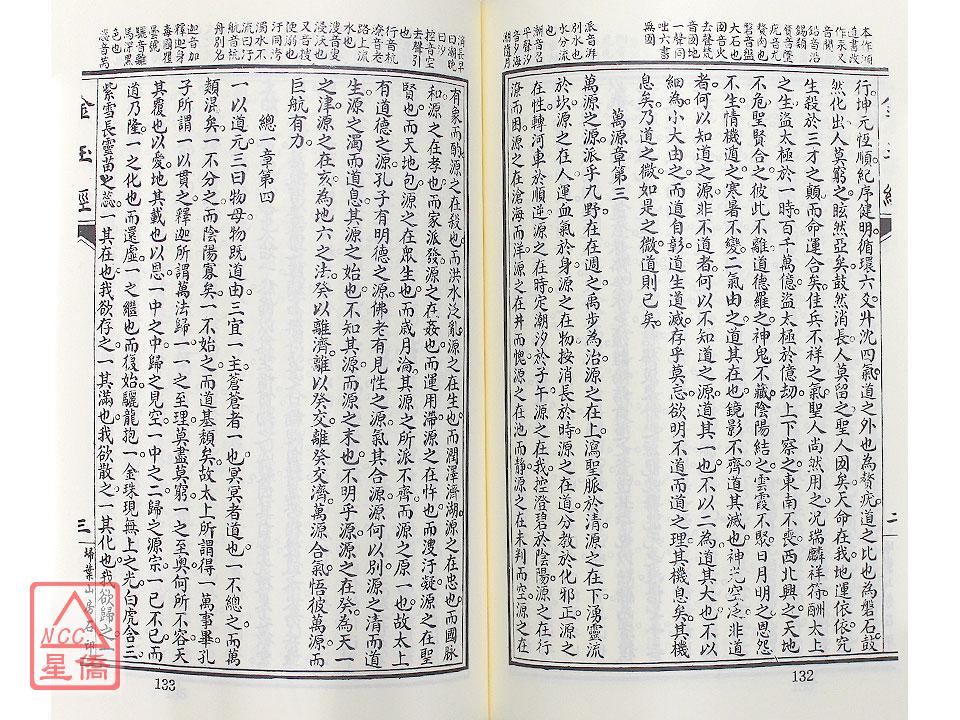 行。坤元恆順。紀序健明。循環六爻。升沈四氣。道之外也。為瞽疣。道之比也。為磐石。鼓
然化出。人莫窮之。眩然亞矣。鼓然消長。人莫留之。聖人國矣。天命在我。地運依依。究
生殺於三才之顛。而命運合矣。佳兵不祥之氣。聖人尚然用之。况瑞麟祥符。酬太上
之生。盜太極於一時。百千萬億。盜太極於億劫。上下察之。東南不喪。西北興之。天地
不危。聖賢合之。彼此不離。道德羅之。神鬼不藏。陰陽結之。雲霞不緊。日月明之。恩怨
不生。情機適之。寒暑不變。二氣由之。道其在也。鏡影不齊。道其滅也。神光空泛。非道
者。何以知道之源。非不道者。何以不知道之源。道其一也。不以二為。道其大也。不以
細為。小大由之。而道自彰。道生道滅。存乎莫忘。欲明不道。而道之理。其機息矣。其機
息矣。乃道之微。如是之微。道則已矣。
萬源章第三
萬源之源。派乎九野。在在週之。禹步為治。源之在上。瀉聖脈於清。源之在下。湧靈流
於坎。源之在人。運血氣於身。源之在物。按消長於時。源之在道。分教於化。邪正源之
在性。轉河車於順逆。源之在時。定潮汐於子午。源之在我。控澄碧於陰陽。源之在行
海而困。源之在滄海而洋。源之在井而愧。源之在池而靜。源之在未判而空。源之在
有象而酌。源之在殺也。而洪水泛亂。源之在生也。而潤澤濟湖。源之在忠也。而國脉
和。源之在孝也。而家派發。源之在姦也。而運用滯。源之在忤也。而溲汙凝。源之在聖
賢也。而天地包。源之在衆生也。而歲月淪。其源之所派不齊。而源之原一也。故太上
有道德之源。孔子有明德之源。佛老有見性之源。氣其合源。源何以別。源之清而道
生。源之濁而道息。其源之始也。不知其源。而源之末也。不明乎源。源之在癸。為天一
之津。源之在亥。為地六之法。癸以離濟。離以癸交。離癸交濟。萬源合氣。悟彼萬源。而
巨航有力。
總一章第四
一以道元。三曰物母。物既道由。三宜一主。蒼蒼者一也。冥冥者道也。一不總之。而萬
類混矣。一不分之。而陰陽寡矣。一不始之。而道基頹矣。故太上所謂得一萬事畢。孔
子所謂一以貫之。釋迦所謂萬法歸一。一之至理。莫盡莫窮。一之至奧。何所不容。天
其覆也以愛。地其載也以恩。一中之中。歸之見空。一中之二。歸之源宗。一已不已。而
道乃隆。一之化也而還虛。一之繼也而復始。驪龍抱一。金珠現無上之光。白虎含三
紫雪長靈苗之蕊。一其在也。我欲存之。一其滿也。我欲散之。一其化也。我欲歸之。一
二
132
三
133
金玉經
掃葉山房石印
NCC
星僑